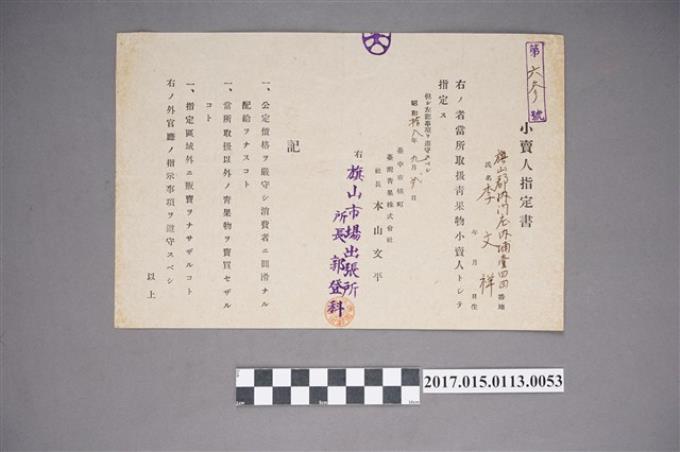 第六參號
小賣人指定書
旗山郡內門庄內埔
番地
氏名 李文祥
年 月 日生
右ノ者當所取扱青果物小賣人トシテ
指定ス
但シ左記事項ヲ遵守スベシ
昭和拾八年九月 日
臺中市橘町
臺灣青果株式會社
社長 本山文平
右
旗山市場出張所
所長 郭登科
記
一、公定價格ヲ嚴守シ消費者ニ圓滑ナル
配給ヲナスコト
一、當所取扱以外ノ青果物ヲ賣買セザル
コト
一、指定區域外ニ販賣ヲナサザルコト
右ノ外官廳ノ指示事項ヲ遵守スベシ
以上
2017.015.0113.0053